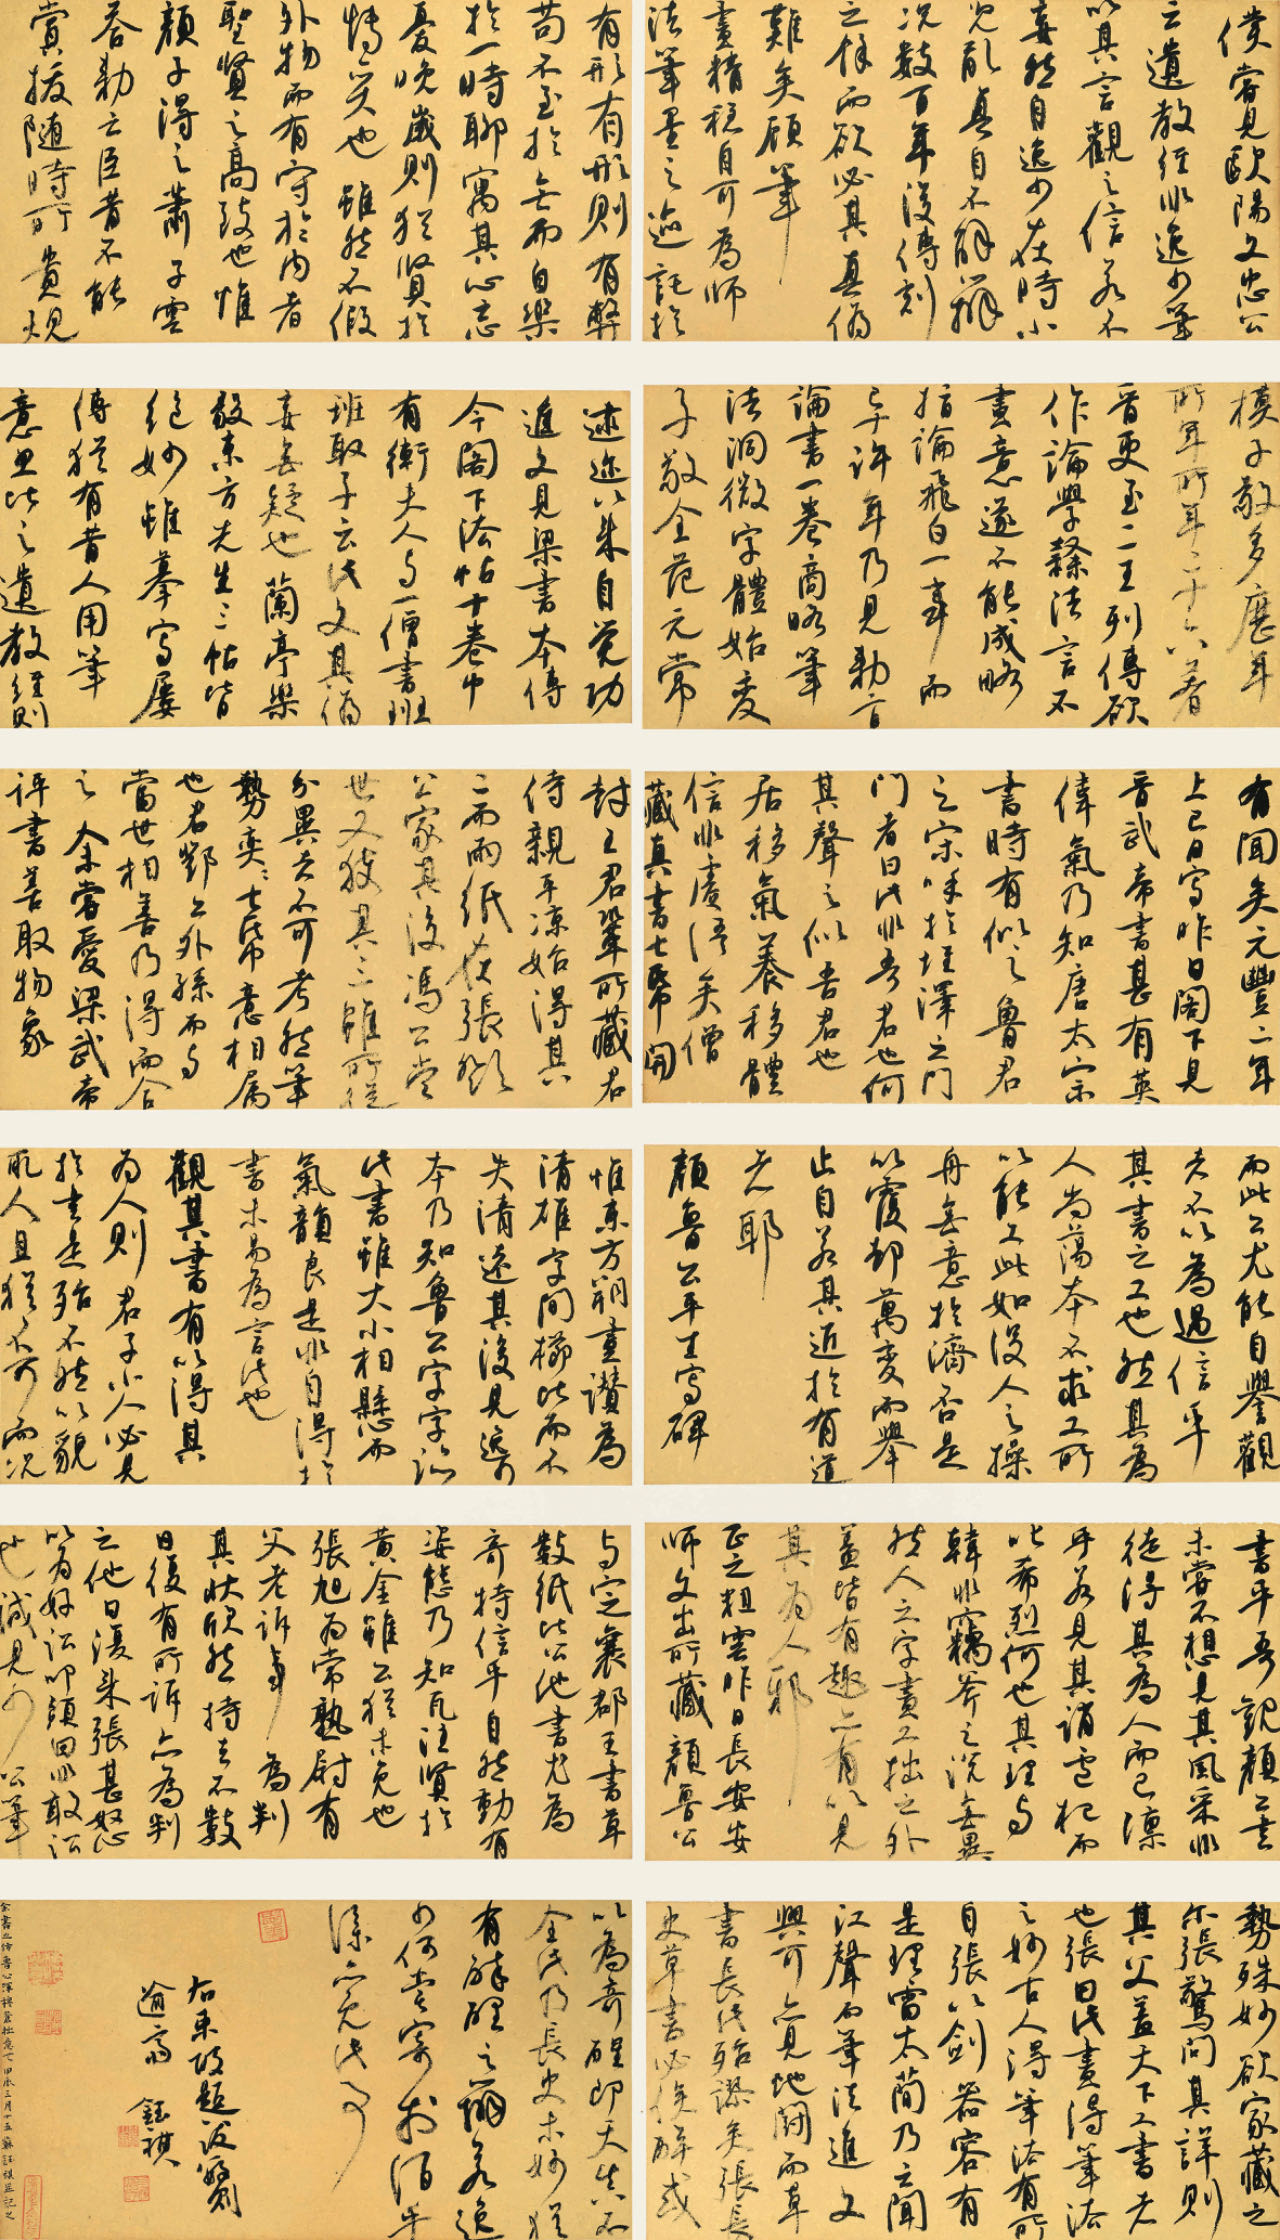 僕嘗見歐陽文忠公
云遺教經非逸少筆
以其言觀之信若不
妄然自逸少在時小
兒亂真自不解辨
況數百年後傳刻
之餘而欲必其真偽
難矣顧筆
畫精穩自可為師
法筆墨之迹託於
有形有形則有弊
苟不至於無而自樂
於一時聊寓其心忘
憂晚歲則猶賢於
博弈也雖然不假
外物而有守於內者
聖賢之高致也惟
顏子得之蕭子雲
答勅云臣昔不能
賞拔隨時所貴規
模子敬多歷年
所年所年二十六著
晉史至二王列傳欲
作論學隸法言不
盡意遂不能成略
指論飛白一事而
已十許年乃見勅旨
論書一卷商略筆
法洞微字體始變
子敬全范元常
逮迩以來自覺功
進文見梁書本傳
今閣下法帖十卷中
有衛夫人與一僧書班
班取子云此文其偽
妄無疑也蘭亭樂
毅東方先生三帖皆
絕妙雖摹寫屢
傳猶有昔人用筆
意思比之遺教經則
有間矣元豐二年
上巳日寫昨日閣下見
晉武帝書甚有英
偉氣乃知唐太宗
書時有似之魯君
之宋呼於垤澤之門
門者曰此非吾君也何
其聲之似吾君也
居移氣養移體
信非虛語矣僧
藏真書七紙開
封王君鞏所藏君
侍親平涼始得其
二而兩紙在張鄧
公家其後馮公當
世又獲其三雖所從
分異者不可考然筆
勢奕奕七紙意相屬
也君鄧公外孫而與
當世相善乃得而合
之余嘗愛梁武帝
評書善取物象
而此公尤能自譽觀
者不以為過信乎
其書之工也然其為
人尚蕩本不求工所
以能工此如沒人之操
舟無意於濟否是
以覆卻萬變而舉
止自若其近於有道
者耶
顏魯公平生寫碑
惟東方朔畫讚為
清雄字間櫛比而不
失清遠其後見逸少
本乃知魯公字字臨
此書雖大小相懸而
氣韻良是非自得於
書未易為言此也
觀其書有以得其
為人則君子小人必見
於書是殆不然以貌
取人且猶不可而況
書乎吾觀顏公書
未嘗不想見其風采非
徒得其為人而已凜
乎若見其誚盧杞而
叱希烈何也其理與
韓非竊斧之說無異
然人之字畫工拙之外
蓋皆有趣亦有以見
其為人邪
正之粗雲昨日長安安
師文出所藏顏魯公
與定襄郡王書草
數紙比公他書尤為
奇特信乎自然動有
姿態乃知瓦注賢於
黃金雖公猶未免也
張旭為常熟尉有
父老訴事為判
其狀欣然持去不數
日復有所訴亦為判
之他日復來張甚怒
以為好訟叩頭曰非敢訟
也誠見少公筆
勢殊妙欲家藏之
尔張驚問其詳則
其父蓋天下工書者
也張由此盡得筆法
之妙古人得筆法有所
自張以劍器容有
是理雷太簡乃云聞
江聲而筆法進文
與可亦見蛇鬥而草
書長此殆謬矣張長
史草書必俟醉或
以為奇醒即天真不
全此乃長史未妙猶
有醉醒之辨若逸
少何嘗寄於酒乎
僕亦免此事
右東坡題跋數則
鈺祺